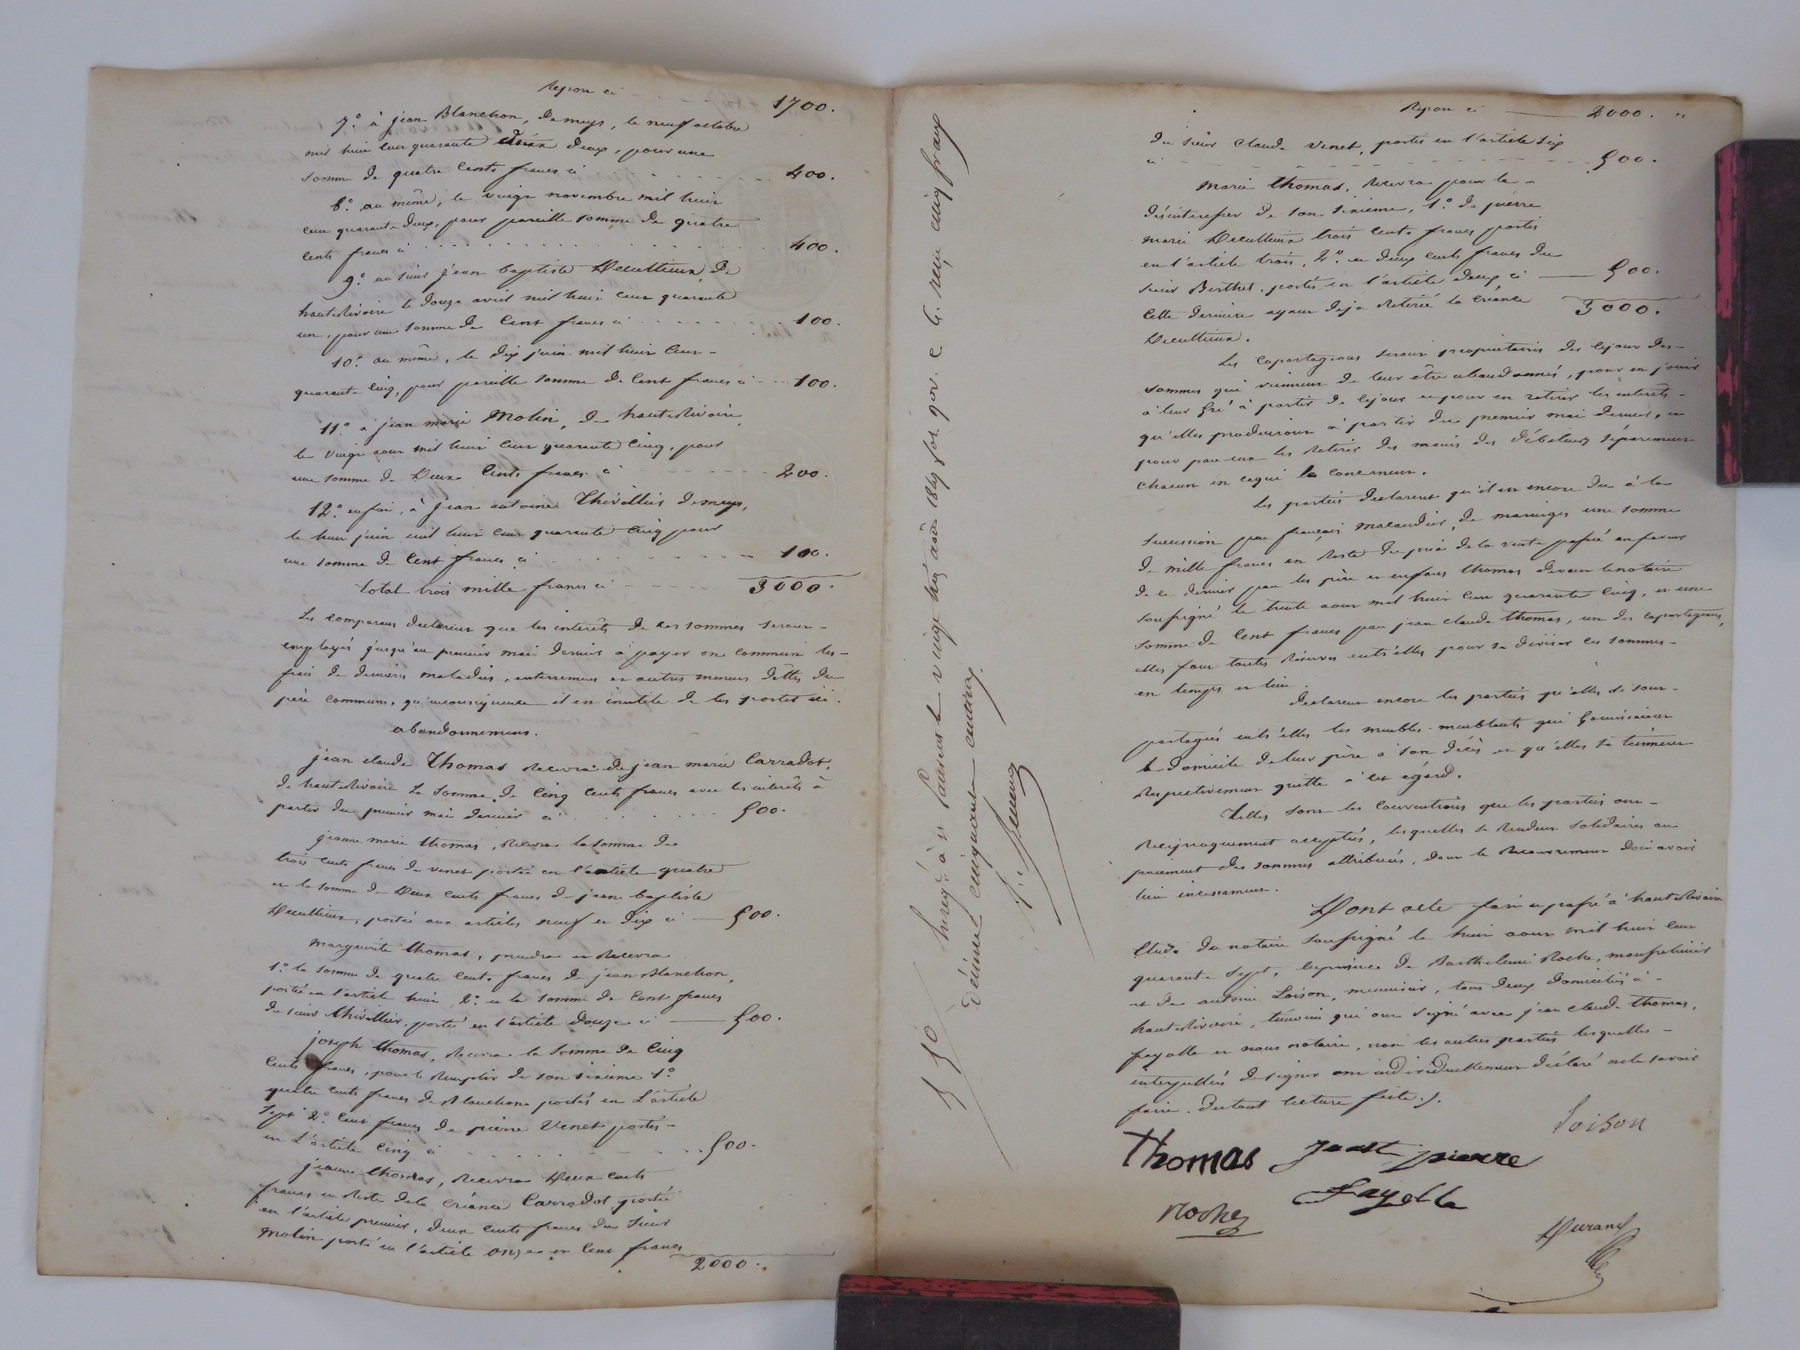 Report ci - - - - - 1700.
7.° à jean Blanchon, de meys, le neuf octobre
mil huit cent quarante deux, pour une
somme de quatre cents francs ci - - - - - 400.
8.° au même, le vingt novembre mil huit
cent quarante deux, pour pareille somme de quatre
cents francs ci - - - - - 400.
9.° au sieur jean baptiste Decultieux, de
hauterivoire le douze avril mil huit cent quarante
un, pour une somme de cent francs ci - - - - - 100.
10.° au même, le dix juin mil huit cent
quarante cinq, pour pareille somme de cent francs ci - - - 100.
11.° à jean marie Molin, de hauterivoire,
le vingt aout mil huit cent quarante cinq, pour
une somme de Deux Cents francs ci - - - - - 200.
12.° enfin, à jean antoine Thivillier de meys,
le huit juin mil huit cent quarante cinq pour
une somme de Cent francs ci - - - - - 100.
total trois mille francs ci - - - - - 3000.
Les comparans déclarent que les intérêts de ces sommes seront
employés jusqu'au premier mai dernier à payer en commun les
frais de dernière maladie, enterrement et autres menues dettes du
père commun, qu'inconséquence il est inutile de les porter ici.
abandonnemens.
jean claude Thomas recevra de jean marie Carradot,
de hauterivoire la somme de cinq cents francs avec les intérêts à
partir du premier mai dernier ci - - - - - 500.
jeanne marie thomas, recevra la somme de
trois cents francs de venet portée en l'article quatre
et la somme de Deux cents francs de jean baptiste
Decultieux, portée aux articles neuf et dix ci — 500.
marguerite thomas, prendra et recevra
1.° la somme de quatre cents francs de jean Blanchon,
portée en l'article huit, 2.° et la somme de Cent francs
du sieur thivillier, portée en l'article douze ci — 500.
joseph thomas, recevra la somme de cinq
cents francs, pour le remplir de son sixième 1.°
quatre cents francs de Blanchon portés en l'article
Sept 2.° cent francs de pierre Venet portés
en l'article cinq ci - - - - - 500.
jeanne thomas, recevra Deux cents
francs en reste de la créance Carradot portée
en l'article premier, deux cents francs du sieur
Molin porté en l'article onze et cent francs
2000.
Enreg.é à S.t Laurent le vingt trois août 1847 f.o 90 v. c. 6. reçu cinq francs
décime cinquante centimes.
5 50
Report ci — 2000. "
du sieur claude venet, portés en l'article six
ci - - - - - 500.
Marie thomas, recevra pour la
désintéresser de son sixième, 1.° de pierre
marie Decultieux trois cents francs portés
en l'article trois, 2.° et deux cents francs du
sieur Berthet, portés en l'article deux ci — 500.
Cette dernière ayant déjà retiré la créance 3000.
Decultieux.
Les copartageans seront propriétaires dès ce jour des
sommes qui viennent de leur être abandonnées, pour en jouir
à leur gré à partir de ce jour et pour en retirer les intérêts
qu'elles produiront à partir du premier mai dernier, et
pour pouvoir les retirer des mains des débiteurs séparément
chacun en ce qui le concerne.
Les parties déclarent qu'il est encore du à la
succession par françois Malaudier, de maringes une somme
de mille francs en reste du prix de la vente passée en faveur
de ce dernier par les père et enfans thomas devant le notaire
soussigné le trente aout mil huit cent quarante cinq, et une
somme de Cent francs par jean claude thomas, un des copartageans,
elles font toutes réserves entr'elles pour se diviser ces sommes
en temps et lieu.
Déclarent encore les parties qu'elles se sont
partagées entr'elles les meubles meublants qui garnissaient
le domicile de leur père à son décès et qu'elles se tiennent
respectivement quitte à cet égard.
Telles sont les conventions que les parties ont
réciproquement acceptées, lesquelles se rendent solidaires au
paiement des sommes attribuées, dont le recouvrement doit avoir
lieu incessamment.
Dont acte fait et passé à hauterivoire
étude du notaire soussigné le huit aout mil huit cent
quarante sept, en présence de Barthelemi Roche,
et de antoine Loison, menuisier, tous deux domiciliés à
hauterivoire, témoins qui ont signé avec jean claude thomas,
fayolle et nous notaire, non les autres parties lesquelles
interpellées de signer ont individuellement déclaré ne le savoir
faire. du tout lecture faite./.
Loison
Thomas Just pierre
Fayolle
Roche
Durand